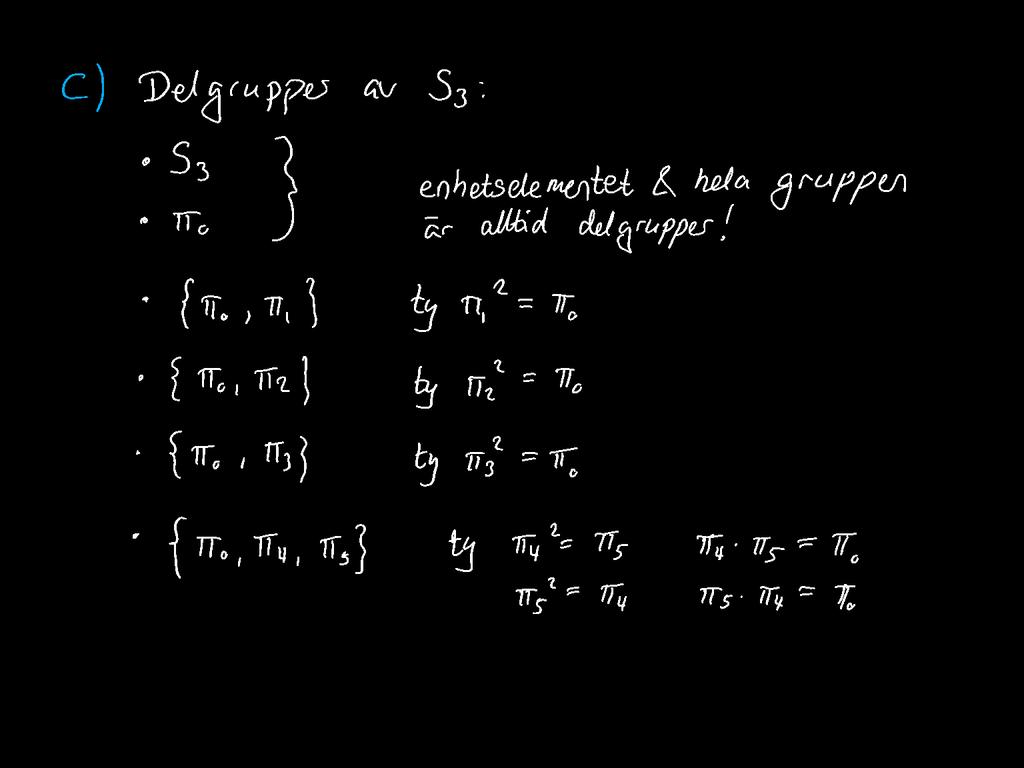 C) Delgrupper av S₃:
• S₃ }
• π₀
enhetselementet & hela gruppen
är alltid delgrupper!
• {π₀, π₁} ty π₁² = π₀
• {π₀, π₂} ty π₂² = π₀
• {π₀, π₃} ty π₃² = π₀
• {π₀, π₄, π₅} ty π₄² = π₅ π₄ · π₅ = π₀
π₅² = π₄ π₅ · π₄ = π₀